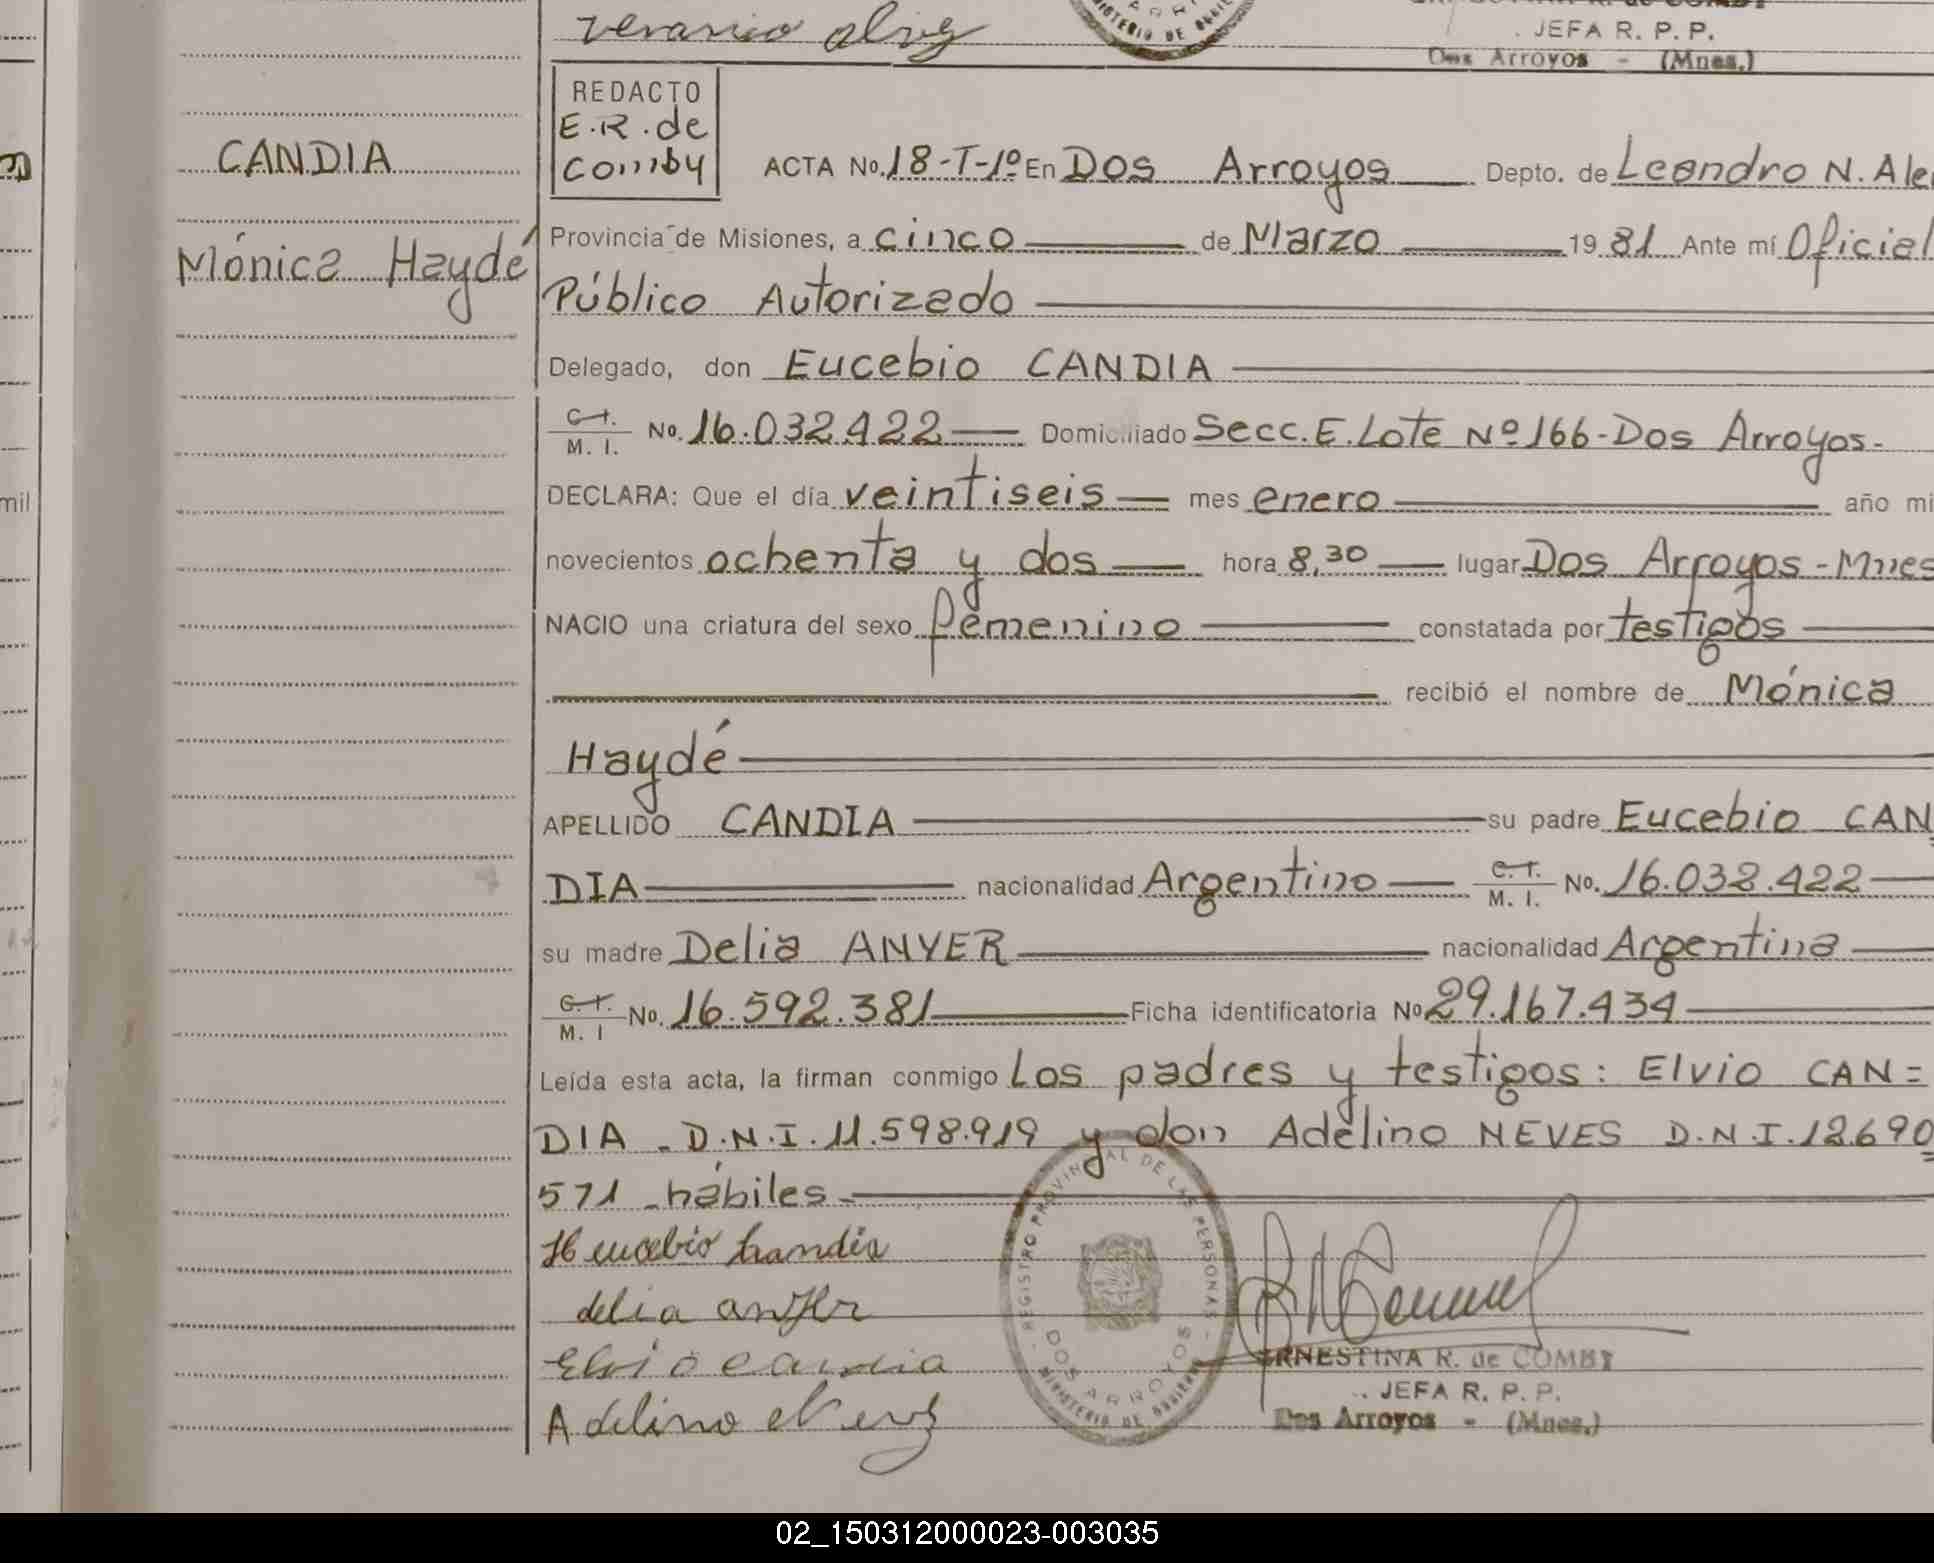 veranio
JEFA R. P. P.
Dos Arroyos - (Mnes.)
REDACTO
E.R. de
Comby
CANDIA
Mónica Haydé
ACTA No. 18-T-1º En Dos Arroyos Depto. de Leandro N. Ale
Provincia de Misiones, a cinco de Marzo 19 81 Ante mí Oficial
Público Autorizado
Delegado, don Eucebio CANDIA
C.I. M. I. No. 16.032.422 Domiciliado Secc. E. Lote Nº 166-Dos Arroyos-
DECLARA: Que el día veintiseis mes enero año mi
mil
novecientos ochenta y dos hora 8,30 lugar Dos Arroyos-Mnes
NACIO una criatura del sexo femenino constatada por testigos
recibió el nombre de Mónica
Haydé
APELLIDO CANDIA su padre Eucebio CAN
DIA nacionalidad Argentino C.I. M. I. No. 16.032.422
su madre Delia ANYER nacionalidad Argentina
C.I. M. I No. 16.592.381 Ficha identificatoria No 29.167.434
Leída esta acta, la firman conmigo Los padres y testigos: Elvio CAN=
DIA - D.N.I. 11.598.919 y don Adelino NEVES D.N.I. 12.690
571 - hábiles -
Eucebio Candia
delia
Elvio candia
Adelino
REGISTRO PROVINCIAL DE LAS PERSONAS
DOS ARROYOS
MINISTERIO DE
ERNESTINA R. de COMBY
JEFA R. P. P.
Dos Arroyos - (Mnes.)
02_150312000023-003035